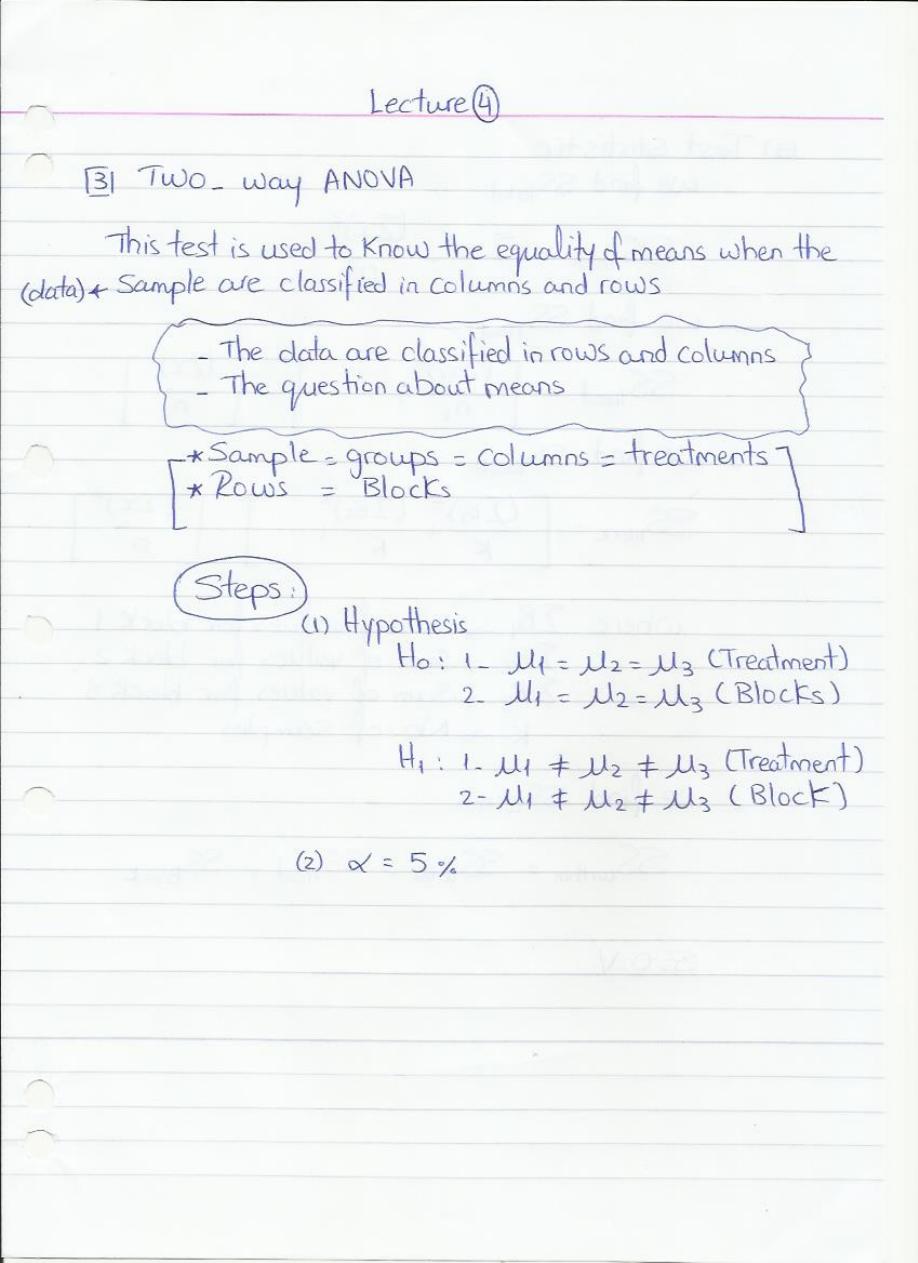 Lecture ④
[3] Two-way ANOVA
This test is used to know the equality of means when the
(data) ← Sample are classified in columns and rows
- The data are classified in rows and columns
- The question about means
* Sample = groups = columns = treatments
* Rows = Blocks
Steps:
(1) Hypothesis
H₀: 1- μ₁ = μ₂ = μ₃ (Treatment)
2- μ₁ = μ₂ = μ₃ (Blocks)
H₁: 1- μ₁ ≠ μ₂ ≠ μ₃ (Treatment)
2- μ₁ ≠ μ₂ ≠ μ₃ (Block)
(2) α = 5%